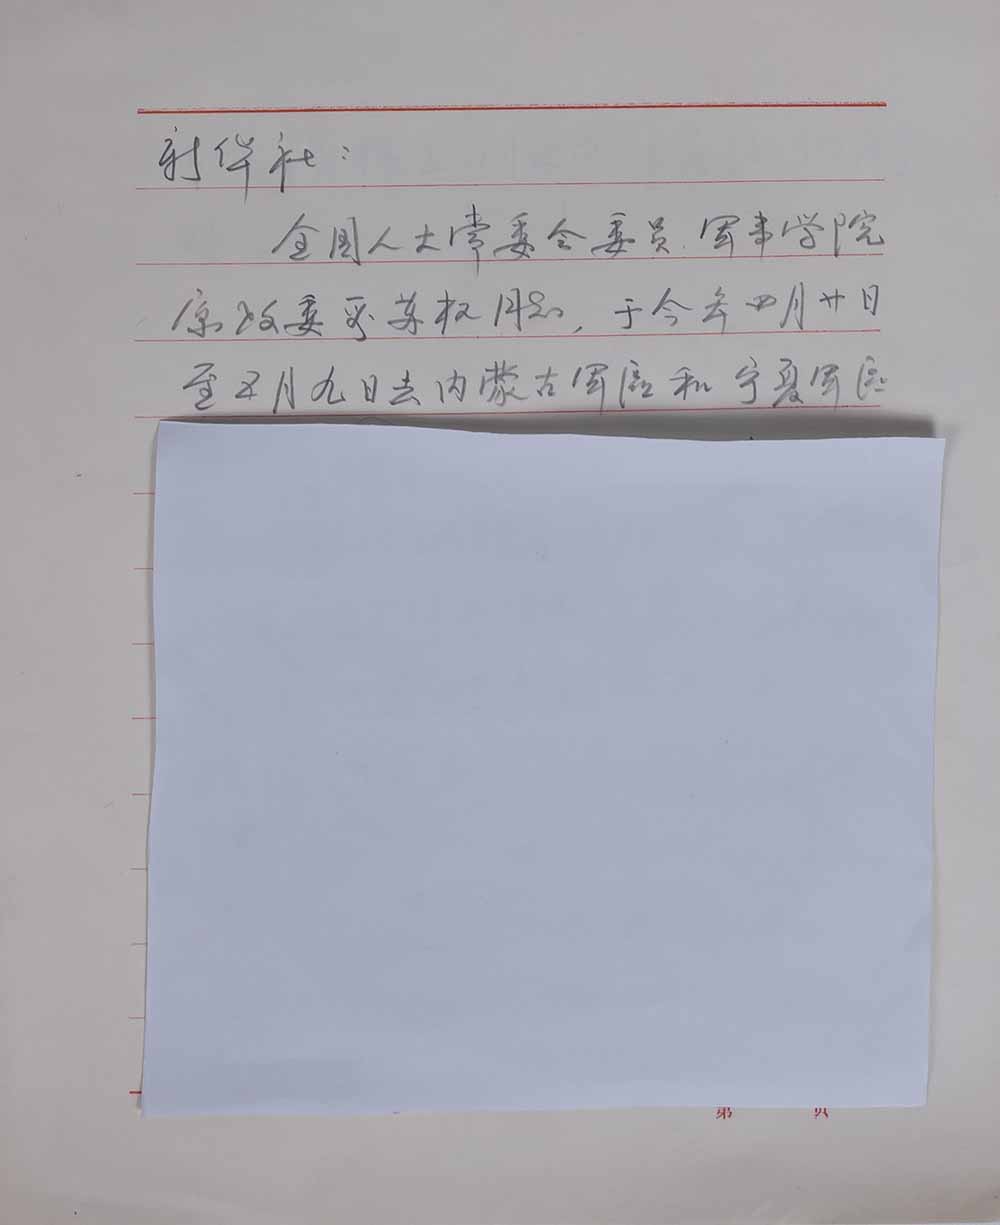 新华社：
全国人大常委会委员、军事学院
原政委 苏权同志，于今年四月廿日
至五月九日去内蒙古军區和宁夏军區
第 页